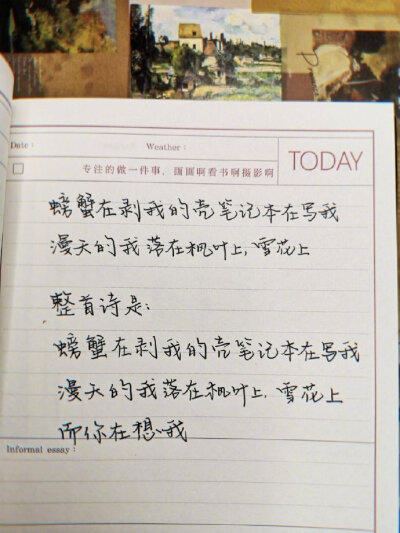 Date:
Weather:
TODAY
专注的做一件事，画画啊看书啊摄影啊
螃蟹在剥我的壳笔记本在写我
漫天的我落在枫叶上,雪花上
整首诗是:
螃蟹在剥我的壳笔记本在写我
漫天的我落在枫叶上.雪花上
而你在想我
Informal essay: